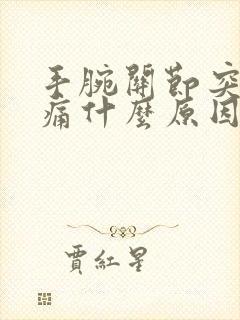 手腕關節突
痛什麼原因
賈紅星